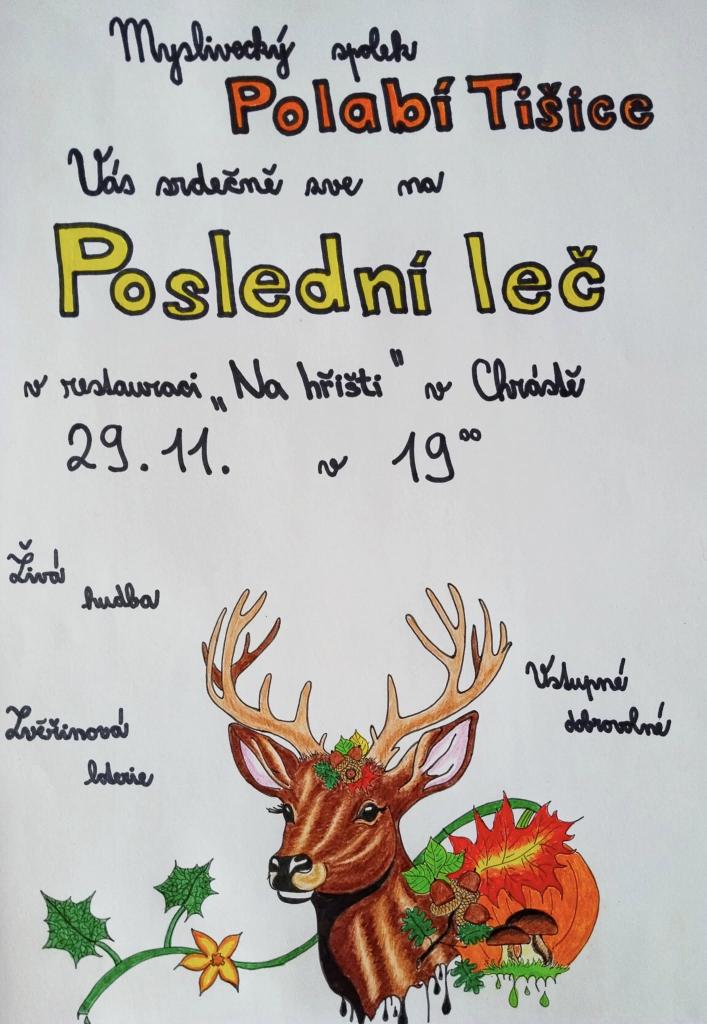 Myslivecký spolek
Polabí Tišice
Vás srdečně zve na
Poslední leč
v restauraci „Na hřišti" v Chrástě
29.11. v 19⁰⁰
Živá
hudba
Vstupné
dobrovolné
Zvěřinová
loterie